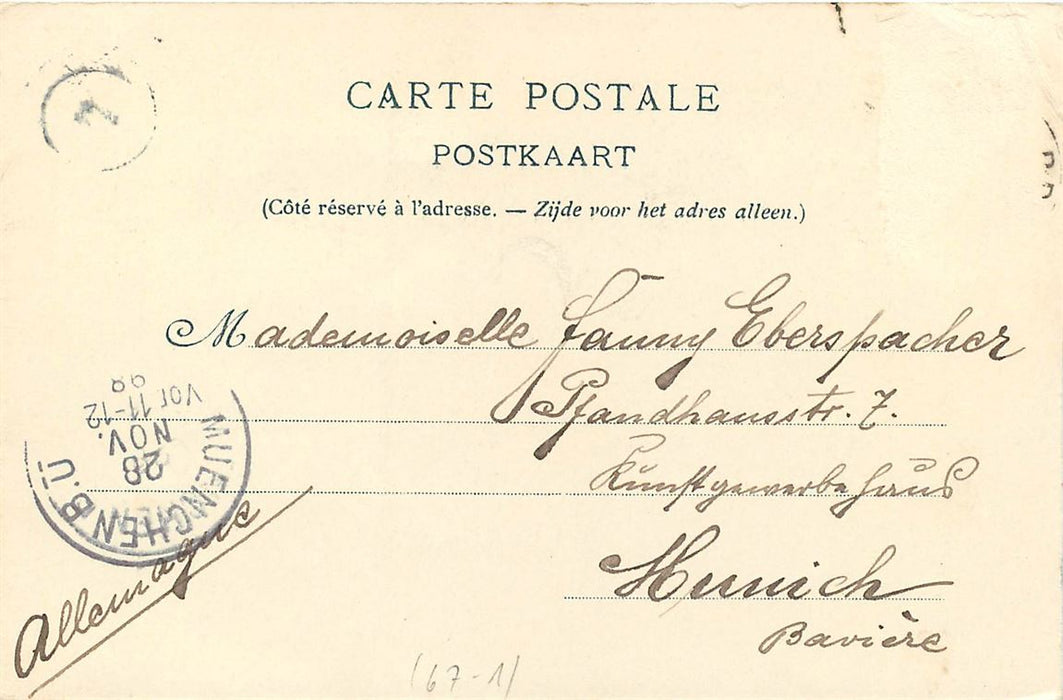 CARTE POSTALE
POSTKAART
(Côté réservé à l'adresse. — Zijde voor het adres alleen.)
Mademoiselle Fanny Eberspacher
Pfandhausstr. 7.
Kunstgewerbehaus
Munich
Bavière
Allemagne
MUENCHEN B.Ü.
28
NOV.
Vor 11-12
98
(67-1)